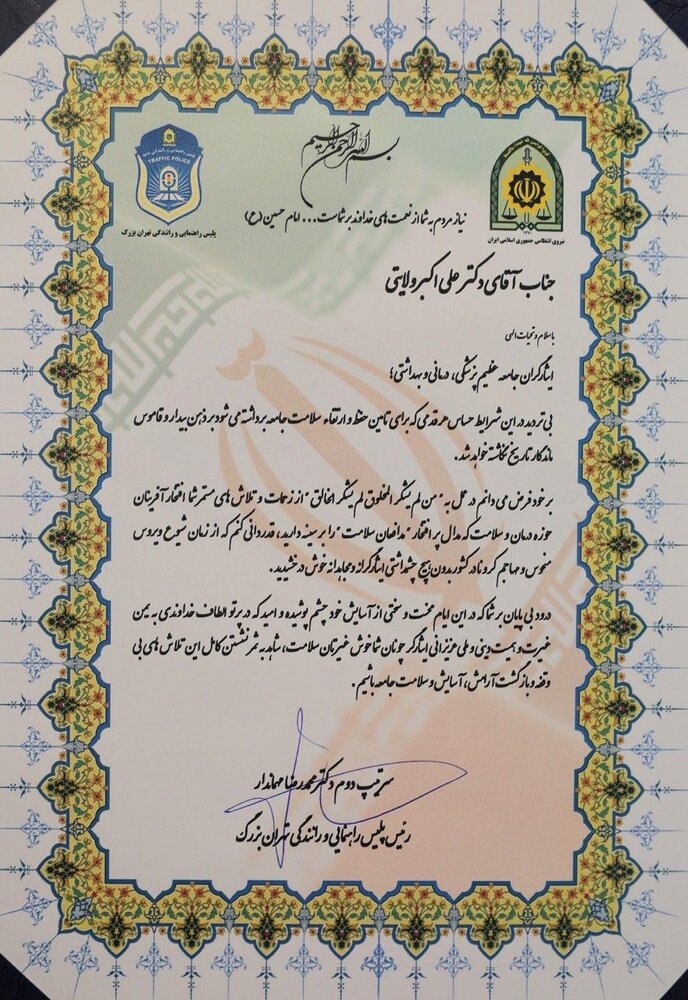 بسم الله الرحمن الرحیم
پلیس راهنمایی و رانندگی تهران بزرگ
TRAFFIC POLICE
پلیس راهنمایی و رانندگی تهران بزرگ
نیروی انتظامی جمهوری اسلامی ایران
نیاز مردم به شما از نعمت های خداوند بر شماست ... امام حسین (ع)
جناب آقای دکتر علی اکبر ولایتی
با سلام و تحیات الهی
ایثارگران جامعه عظیم پزشکی، درمانی و بهداشتی؛
بی تردید در این شرایط حساس هر قدمی که برای تامین حفظ و ارتقاء سلامت جامعه برداشته می شود بر ذهن بیدار و قاموس
ماندگار تاریخ نگاشته خواهد شد.
بر خود فرض می دانم در عمل به "من لم یشکر المخلوق لم یشکر الخالق" از زحمات و تلاش های مستمر شما افتخار آفرینان
حوزه درمان و سلامت که مدال پر افتخار "مدافعان سلامت" را بر سینه دارید، قدردانی کنم که از زمان شیوع ویروس
منحوس و مهاجم کرونا در کشور بدون هیچ چشمداشتی ایثارگرانه و مجاهدانه خوش درخشیدید.
درود بی پایان بر شما که در این ایام محنت و سختی از آسایش خود چشم پوشیده و امید که در پرتو الطاف خداوندی به یمن
غیرت و همیت دینی و ملی عزیزانی ایثارگر چونان شما خوش غیرتان سلامت، شاهد به ثمر نشستن کامل این تلاش های بی
وقفه و بازگشت آرامش، آسایش و سلامت جامعه باشیم.
سرتیپ دوم دکتر محمدرضا مهماندار
رئیس پلیس راهنمایی و رانندگی تهران بزرگ